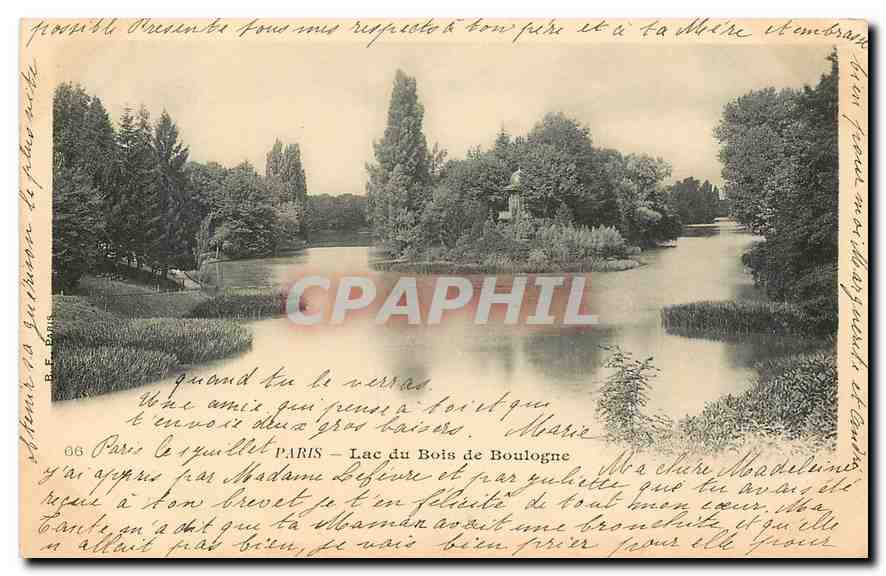 possible Presente tous mes respects à ton père et à ta Mère et embrasse
bien pour moi Marguerite et André
obtenir sa guérison le plus vite
B. F., PARIS
CPAPHIL
quand tu le verras.
Une amie qui pense à toi et qui
t'envoie deux gros baisers. Marie
66 Paris le juillet PARIS – Lac du Bois de Boulogne
Ma chère Madeleine
J'ai appris par Madame Lefèvre et par Juliette que tu avais été
reçue à ton brevet je t'en félicite de tout mon cœur. Ma
Tante m'a dit que ta Maman avait une bronchite et qu'elle
n'allait pas bien, je vais bien prier pour elle pour